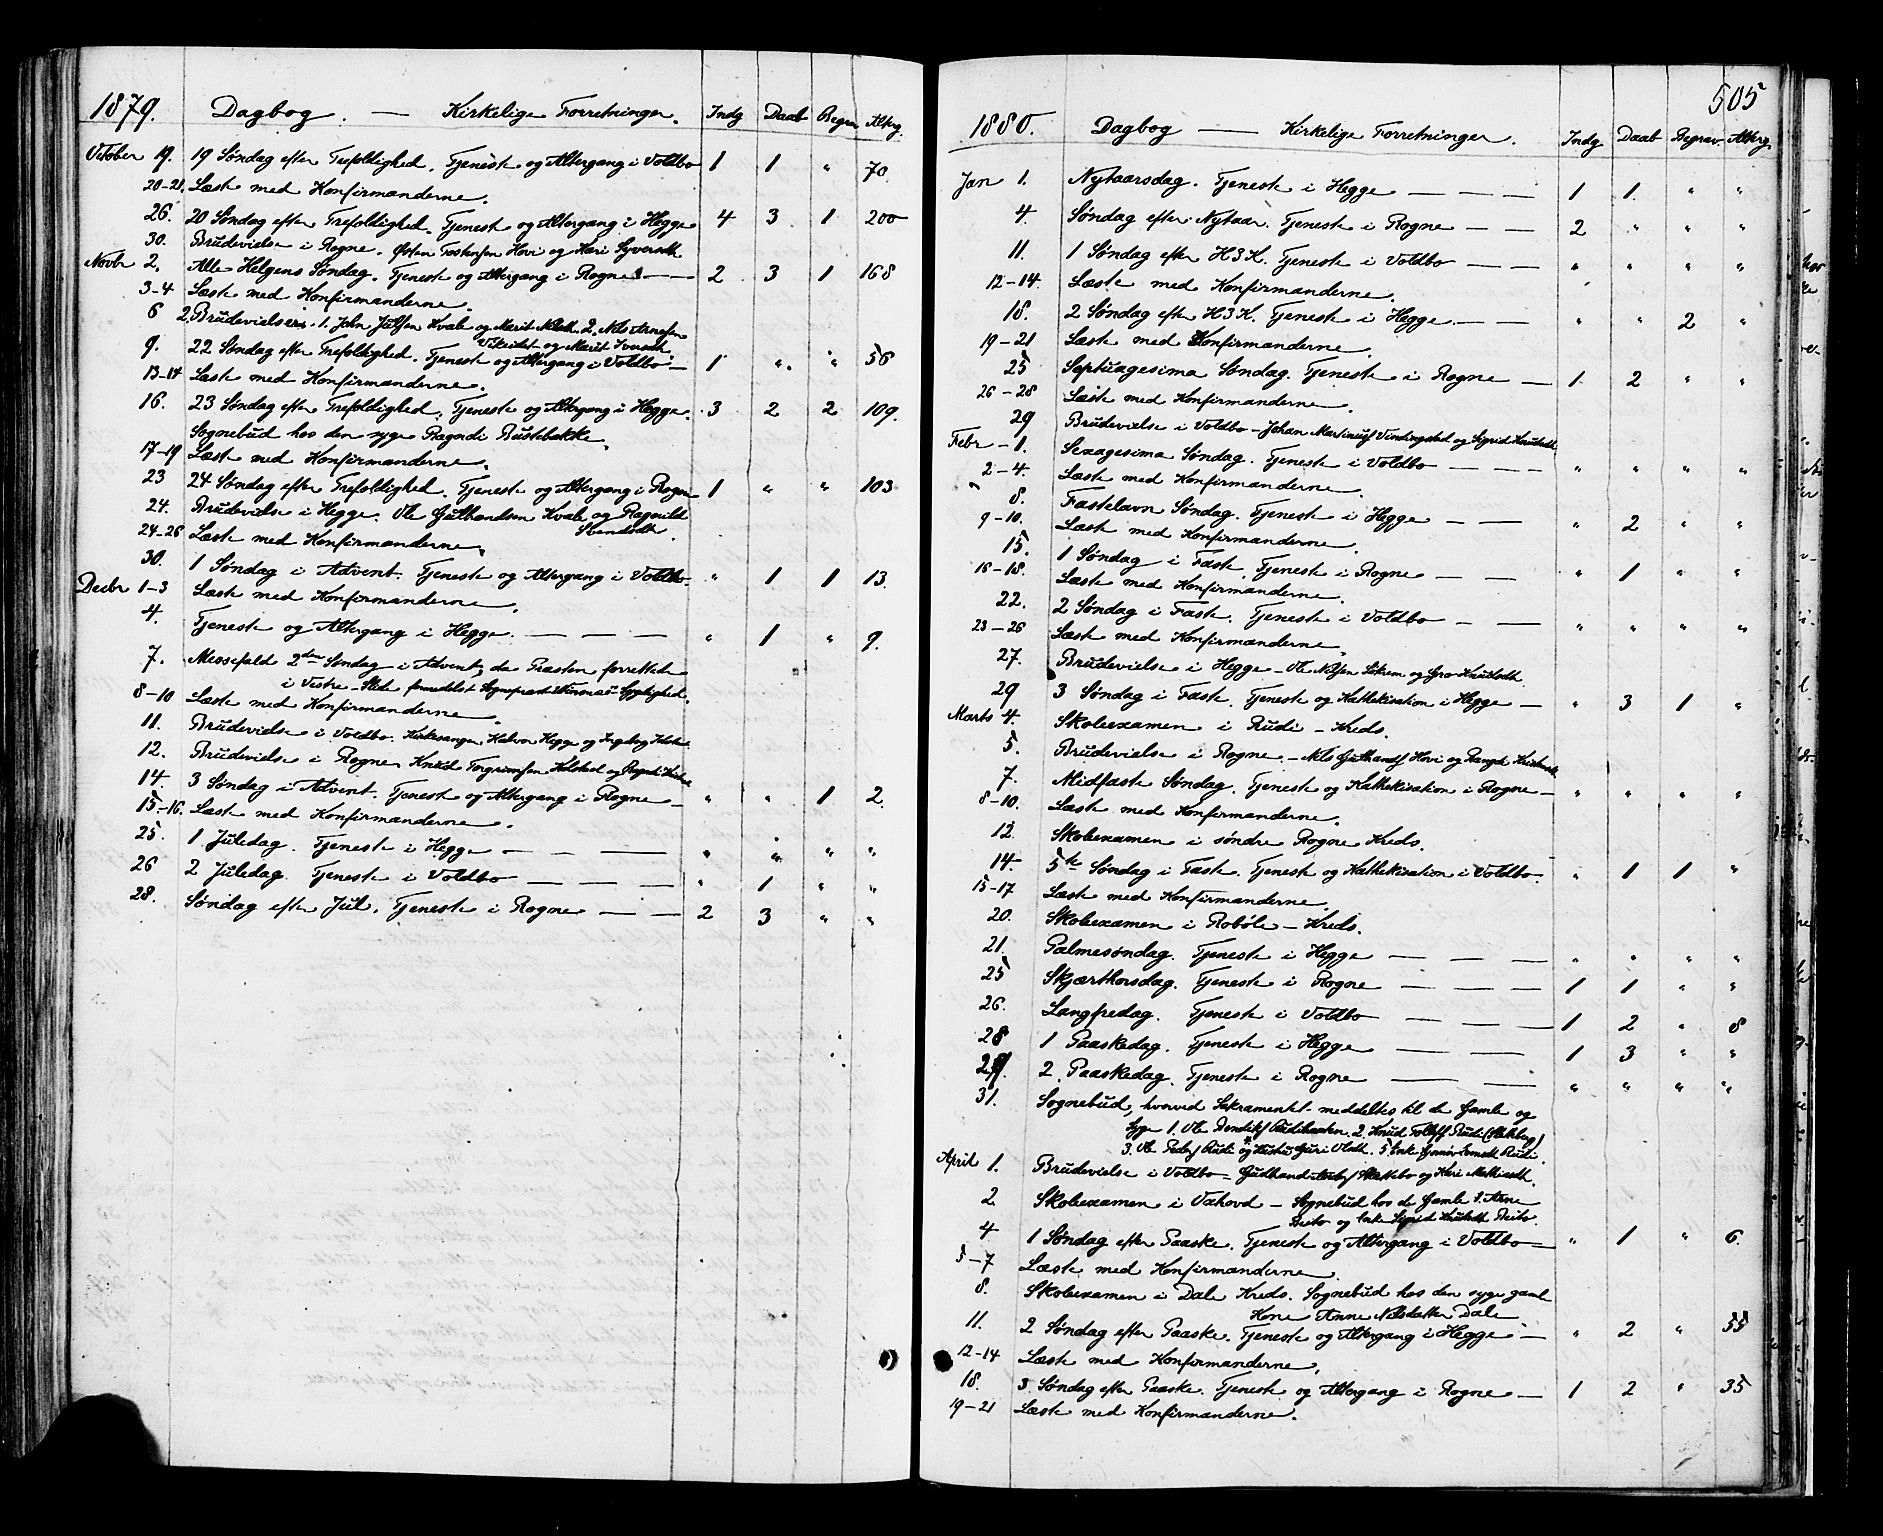 1879. Dagbog. — Kirkelige Forretninger. Indg Daab Begr Alterg.
October 19. 19 Søndag efter Trefoldighed. Tjeneste og Altergang i Voldbo 1 1 " 70
20-21. Læste med Konfirmanderne.
26. 20 Søndag efter Trefoldighed. Tjeneste og Altergang i Hegge 4 3 1 200
30. Brudevielse i Rogne. Østen Tostensen Hovi og Mari Syversdtr
Novbr 2. Alle Helgens Søndag. Tjeneste og Altergang i Rogne — 2 3 1 168
3-4 Læste med Konfirmanderne.
6 2 Brudevielser. 1. John Juulsen Kvale og Marit Nilsdtr. 2. Nils Arnesen
og Marit Iversdtr
9. 22 Søndag efter Trefoldighed. Tjeneste og Altergang i Voldbo — 1 " " 56
13-14 Læste med Konfirmanderne.
16. 23 Søndag efter Trefoldighed. Tjeneste og Altergang i Hegge. 3 2 2 109.
Sognebud hos den syge Ragndi Rustebakke.
17-19 Læste med Konfirmanderne.
23 24 Søndag efter Trefoldighed. Tjeneste og Altergang i Rogne 1 " " 103
24. Brudevielse i Hegge. Ole Gulbrandsen Kvale og Ragnild
24-26 Læste med Konfirmanderne.
30. 1 Søndag i Advent. Tjeneste og Altergang i Voldbo " 1 1 13.
Decbr 1-3 Læste med Konfirmanderne.
4. Tjeneste og Altergang i Hegge. — — — " 1 " 9.
7. Messefald 2den Søndag i Advent, da Præsten forrettede
i Vestre-Slidre formedelst Sognepræst Sygelighed.
8-10 Læste med Konfirmanderne.
11. Brudevielse i Voldbo. Kirkesanger Halvor Hegge og Ingeborg
12. Brudevielse i Rogne Knud Torgrimsen Kolstad og Ragndi
14. 3 Søndag i Advent. Tjeneste og Altergang i Rogne — " " 1 2.
15-16. Læste med Konfirmanderne.
25. 1 Juledag. Tjeneste i Hegge — — — " " " "
26 2 Juledag. Tjeneste i Voldbo — — — " 1 " "
28. Søndag efter Jul. Tjeneste i Rogne — — 2 3 " "
505
1880. Dagbog — Kirkelige Forretninger. Indg Daab Begrav. Alterg.
Jan 1. Nytaarsdag. Tjeneste i Hegge — — — 1 1. " "
4 Søndag efter Nytaar. Tjeneste i Rogne — — 2 " " "
11. 1 Søndag efter H3K. Tjeneste i Voldbo — — " " " "
12-14. Læste med Konfirmanderne.
18. 2 Søndag efter H3K. Tjeneste i Hegge. — — " " 2 "
19-21 Læste med Konfirmanderne.
25 Septuagesima Søndag. Tjeneste i Rogne — 1 2 " "
26-28 Læste med Konfirmanderne.
29 Brudevielse i Voldbo — Johan og Sigrid Knudsdtr
Febr - 1. Sexagesima Søndag. Tjeneste i Voldbo — — — " " " "
2-4. Læste med Konfirmanderne.
8. Fastelavn Søndag. Tjeneste i Hegge — — " 2 " "
9-10. Læste med Konfirmanderne.
15. 1 Søndag i Faste. Tjeneste i Rogne — — " 1 " "
16-18. Læste med Konfirmanderne.
22. 2 Søndag i Faste. Tjeneste i Voldbo — — " " " "
23-26 Læste med Konfirmanderne.
27. Brudevielse i Hegge — Ole Nilsen og Gro Knudsdtr
29 3 Søndag i Faste. Tjeneste og Kathekisation i Hegge — " 3 1 "
Marts 4. Skoleexamen i Rudi — Kreds.
5. Brudevielse i Rogne — Nils Gulbrands Hovi og
7. Midfaste Søndag. Tjeneste og Kathekisation i Rogne — " " " "
8-10. Læste med Konfirmanderne.
12 Skoleexamen i søndre Rogne Kreds.
14. 5te Søndag i Faste. Tjeneste og Kathekisation i Voldbo. " 1 1 "
15-17 Læste med Konfirmanderne.
20. Skoleexamen i Robøle — Kreds.
21. Palmesøndag. Tjeneste i Hegge — — — " " " "
25 Skjærthorsdag. Tjeneste i Rogne — — — 1 1 " "
26. Langfredag. Tjeneste i Voldbo — — — 1 2 " 8
28 1 Paaskedag. Tjeneste i Hegge — — — 1 3 " "
29. 2. Paaskedag. Tjeneste i Rogne — — — " " " "
31. Sognebud, hvorved Sakramentet meddeltes til de Gamle og
Syge 1. Ole 2. Knud Rudi
3. Ole Rudi og Guri Olsdtr. 5. Enke Rudi.
April 1. Brudevielse i Voldbo — Gudbrand og Kari
2 Skoleexamen i Vahovd — Sognebud hos de Gamle 1. Arne
Beito og Enke Sigrid Knudsdtr Beito.
4 1 Søndag efter Paaske. Tjeneste og Altergang i Voldbo — " 1 " 6.
5-7 Læste med Konfirmanderne.
8. Skoleexamen i Dale Kreds. Sognebud hos den syge gamle
Kone Anne Nilsdatter Dale
11. 2 Søndag efter Paaske. Tjeneste og Altergang i Hegge — " 2 " 55
12-14 Læste med Konfirmanderne.
18. 3. Søndag efter Paaske. Tjeneste og Altergang i Rogne — 1 2 " 35
19-21 Læste med Konfirmanderne.